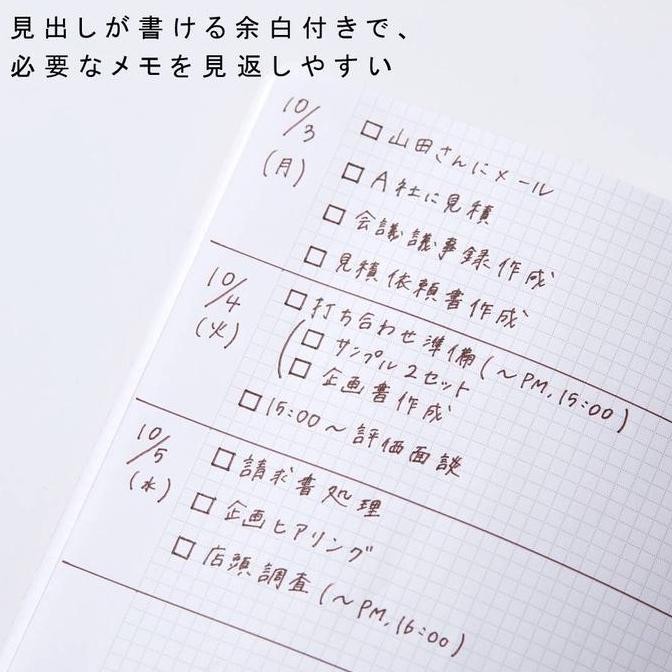 見出しが書ける余白付きで、
必要なメモを見返しやすい
10/3
(月)
□山田さんにメール
□A社に見積
□会議議事録作成
□見積依頼書作成
10/4
(火)
□打ち合わせ準備(〜PM,15:00)
□サンプル2セット
□企画書作成
□15:00〜評価面談
10/5
(水)
□請求書処理
□企画ヒアリング
□店頭調査(〜PM,16:00)